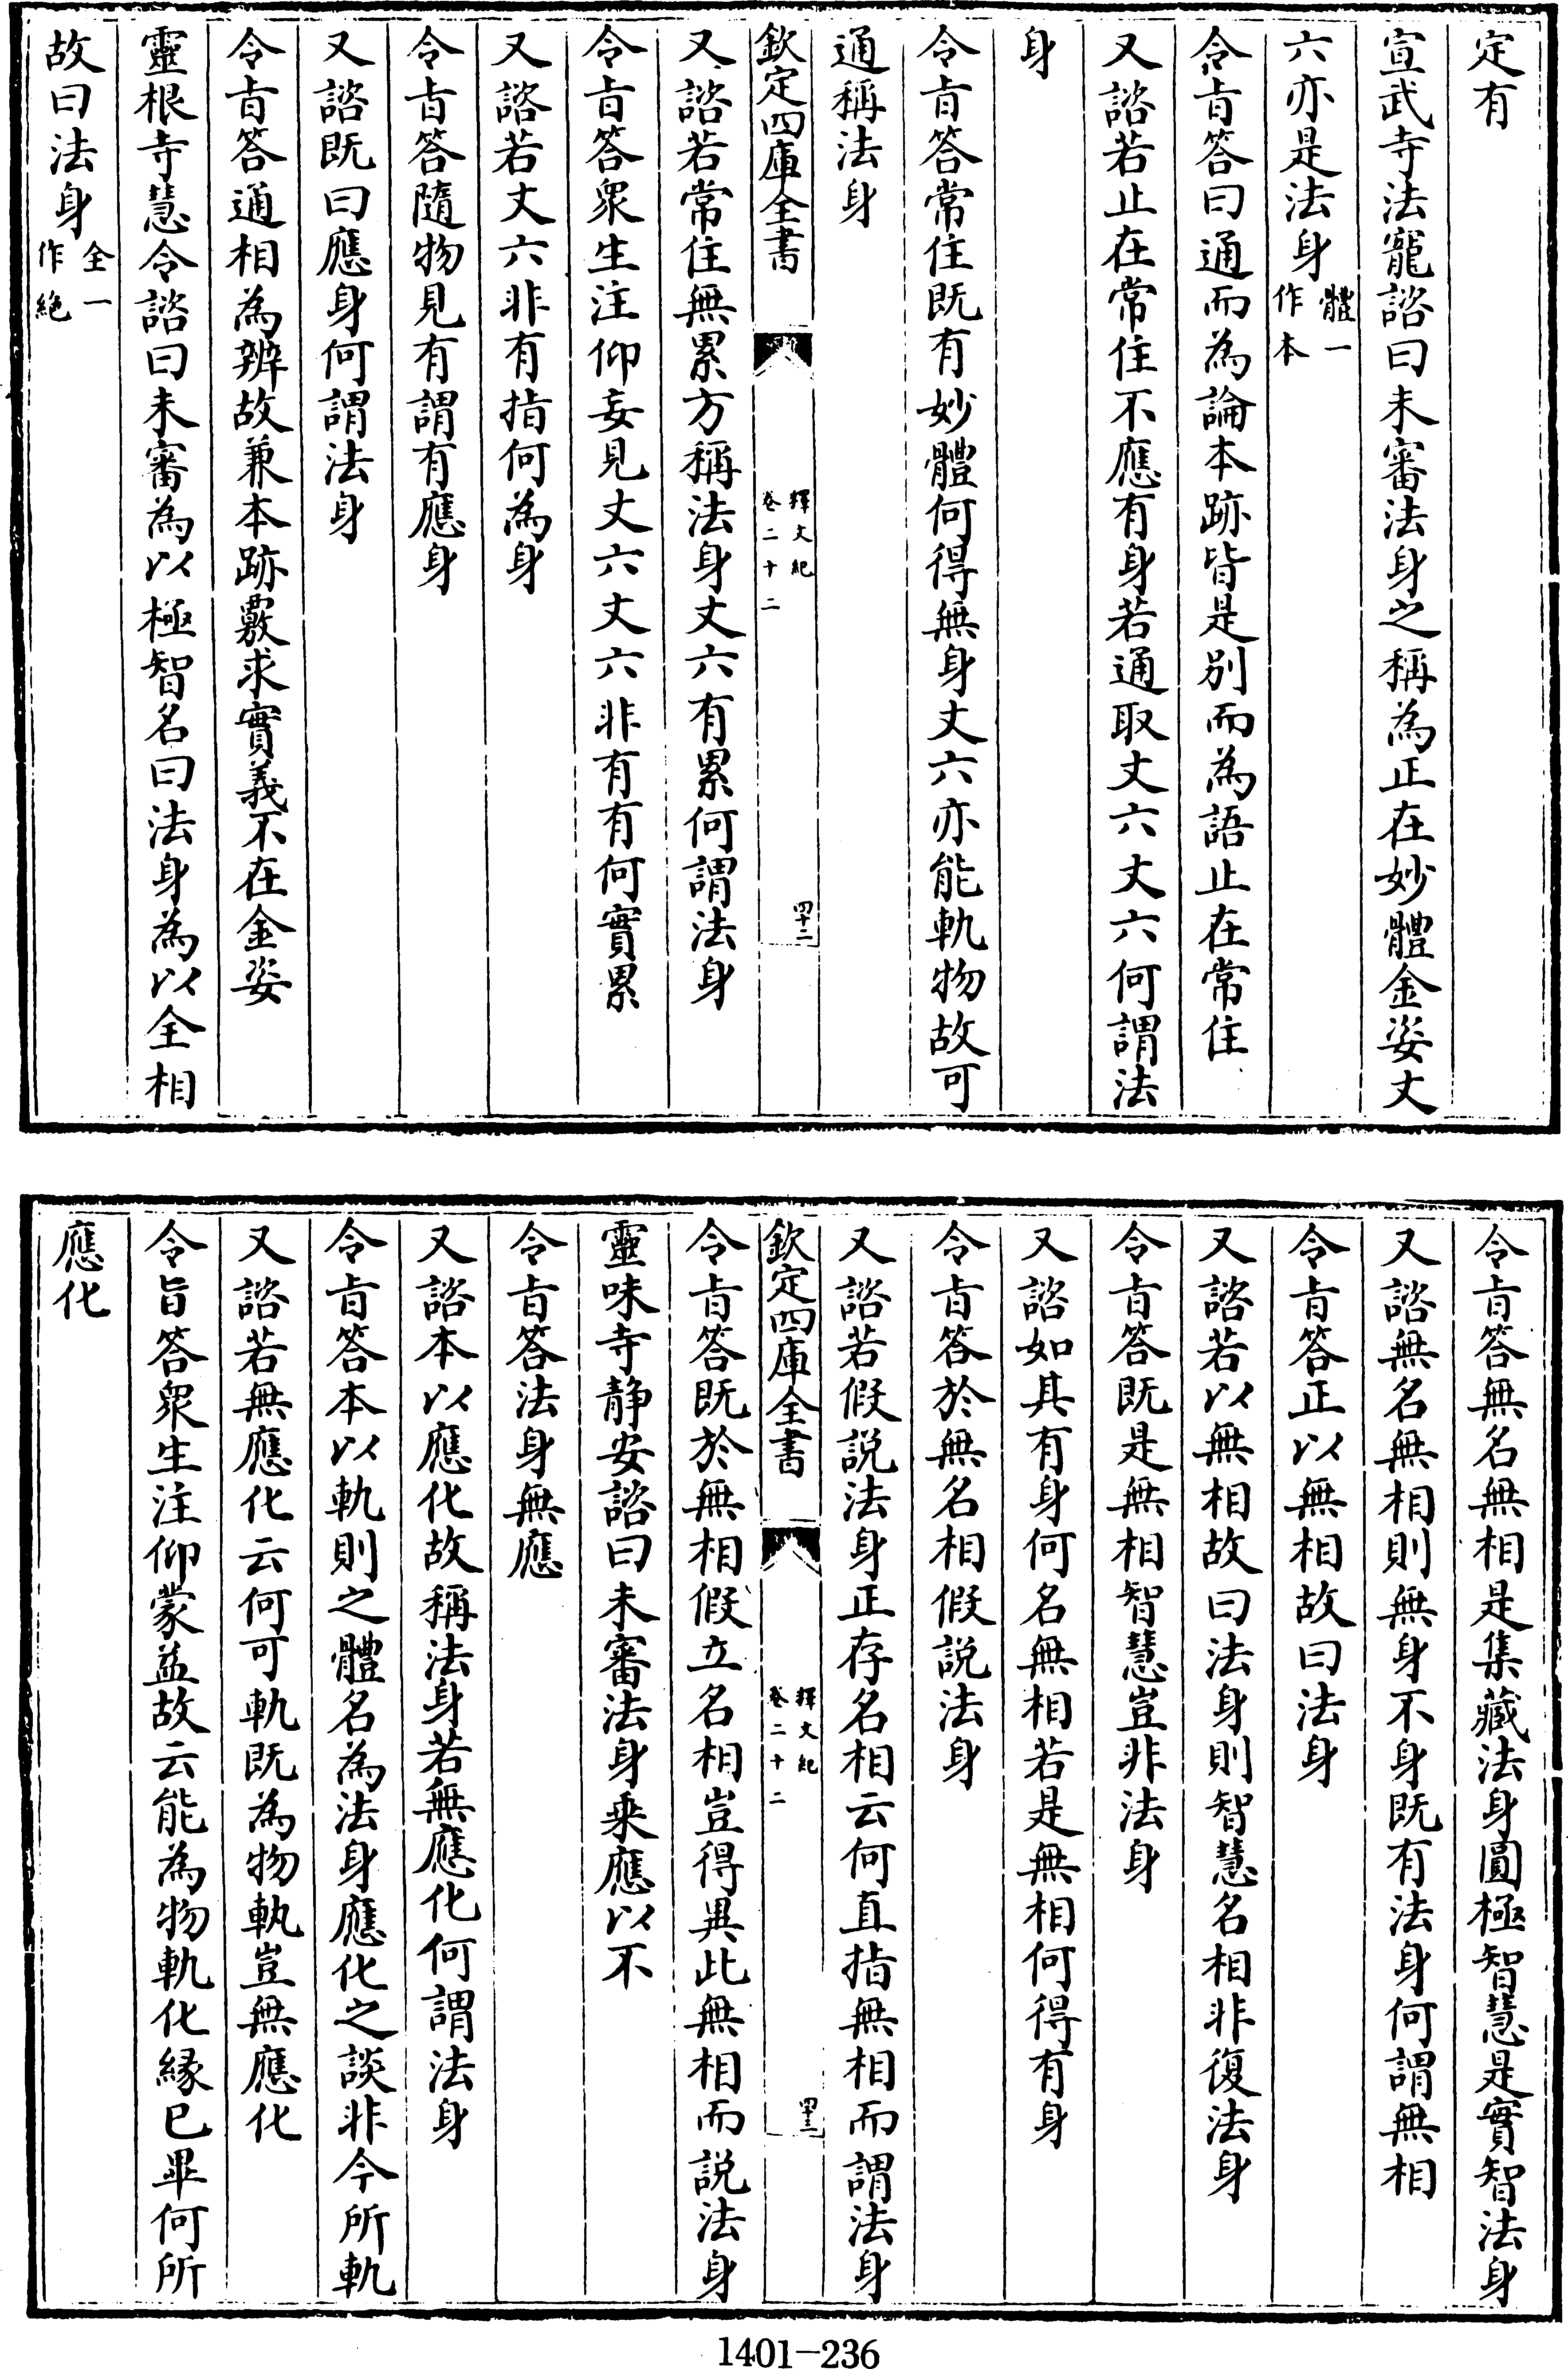 定有
宣武寺法寵諮曰未審法身之稱為正在妙體金姿丈
六亦是法身體一作本
令旨答曰通而為論本跡皆是别而為語止在常住
又諮若止在常住不應有身若通取丈六丈六何謂法
身
令旨答常住既有妙體何得無身丈六亦能軌物故可
通稱法身
欽定四庫全書 釋文紀卷二十二 四十二
又諮若常住無累方稱法身丈六有累何謂法身
令旨答衆生注仰妄見丈六丈六非有有何實累
又諮若丈六非有指何為身
令旨答隨物見有謂有應身
又諮既曰應身何謂法身
令旨答通相為辨故兼本跡覈求實義不在金姿
靈根寺慧令諮曰未審為以極智名曰法身為以全相
故曰法身全一作絶
令旨答無名無相是集藏法身圓極智慧是實智法身
又諮無名無相則無身不身既有法身何謂無相
令旨答正以無相故曰法身
又諮若以無相故曰法身則智慧名相非復法身
令旨答既是無相智慧豈非法身
又諮如其有身何名無相若是無相何得有身
令旨答於無名相假説法身
又諮若假説法身正存名相云何直指無相而謂法身
欽定四庫全書 釋文紀卷二十二 四十三
令旨答既於無相假立名相豈得異此無相而説法身
靈味寺静安諮曰未審法身乘應以不
令旨答法身無應
又諮本以應化故稱法身若無應化何謂法身
令旨答本以軌則之體名為法身應化之談非今所軌
又諮若無應化云何可軌既為物軌豈無應化
令旨答衆生注仰蒙益故云能為物軌化緣已畢何所
應化
1401-236